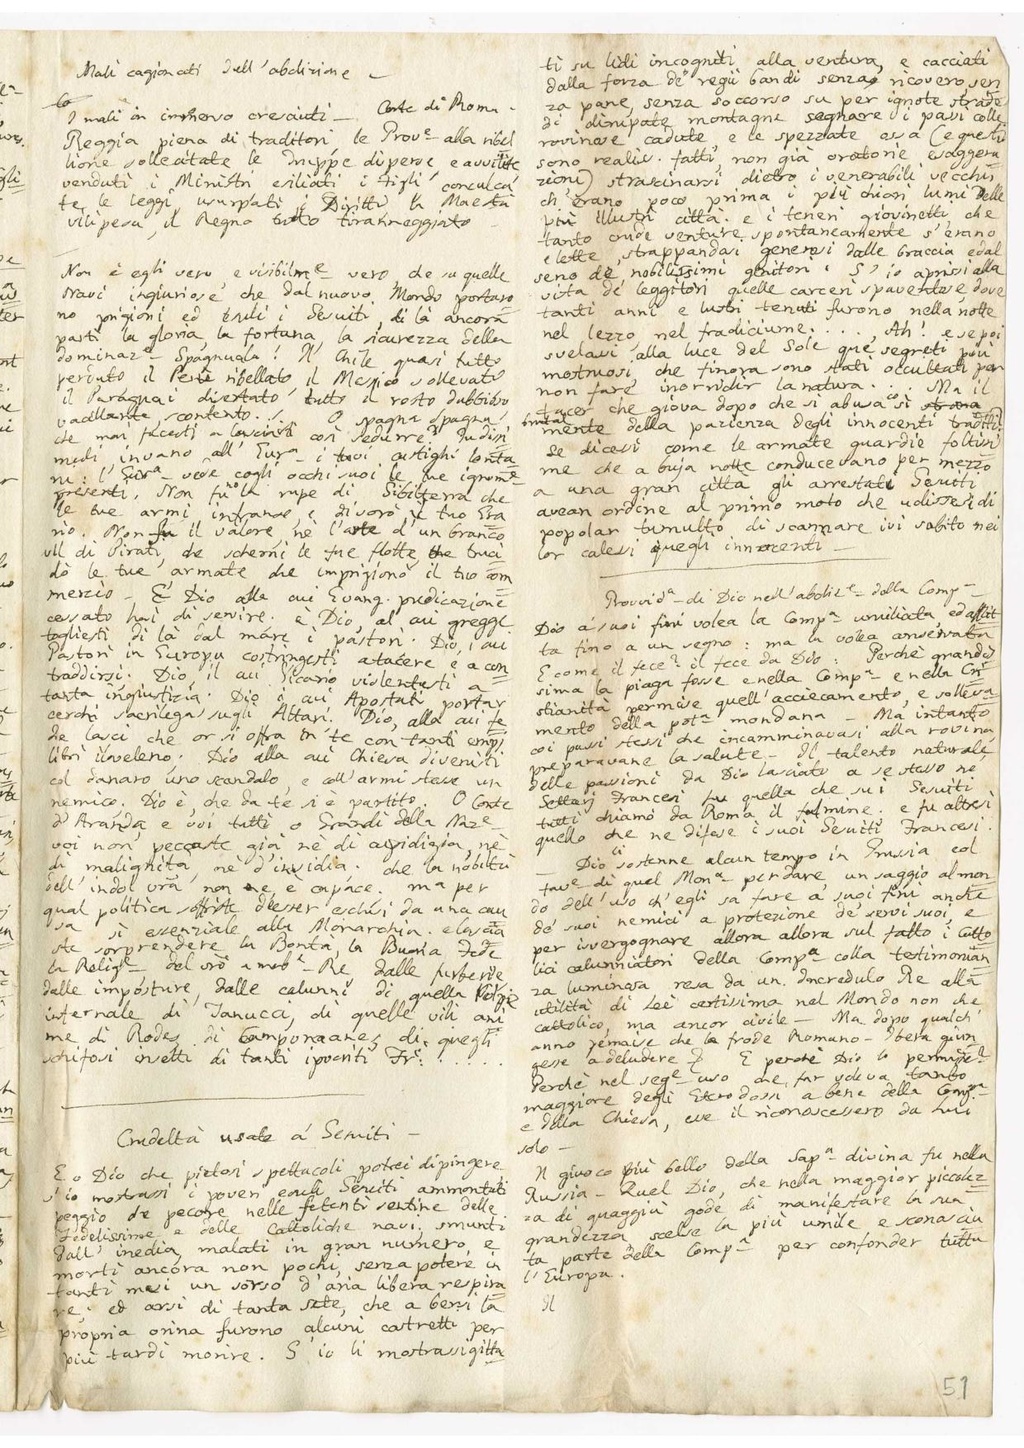 Mali cagionati dell'abolizione –
I mali in immenso cresciuti – Corte di Roma –
Reggia piena di traditori le Prov.e alla ribel
lione sollecitate le truppe disperse, e avvilite
venduti i Ministri esiliati i figli, conculca
te le leggi usurpati i Diritti la Maestà
vilipesa, il Regno tutto tiranneggiato –
Non è egli vero e visibilm.e vero, che su quelle
navi ingiuriose che dal nuovo Mondo portaro
no prigioni ed esuli i Gesuiti, di là ancora
partì la gloria, la fortuna, la sicurezza della
dominaz.e Spagnuola! Il Chile quasi tutto
perduto il Perù ribellato il Messico sollevato
il Paraguai disertato tutto il resto dubbioso
vacillante scontento. O Spagna Spagna
che mai facesti a lasciarti così sedurre!
medi invano all' Eur.a i tuoi castighi lonta
ni: l'Eur.a vede cogli occhi suoi le tue ignomie
presenti. Non fu la rupe di Gibilterra che
le tue armi infranse, e divorò il tuo Era
rio. Non fu il valore, nè l'arte d'un branco
vil di Pirati, che schernì le tue flotte che truci
dò le tue armate che imprigionò il tuo com
merzio – È Dio alla cui Evang. predicazione
cessato hai di servire. è Dio, al cui gregge
togliesti di là dal mare i pastori. Dio, i cui
Pastori in Europa costringesti a tacere e a con
traddirsi. Dio, il cui Vicario violentasti a
tanta ingiustizia. Dio i cui Apostati portar
cerchi sacrilega sugli Altari. Dio, alla cui fe
de lasci che or si offra in te con tanti empj
libri il veleno. Dio alla cui Chiesa divenisti
col danaro uno scandalo, e coll'armi stesse un
nemico. Dio è, che da te si è partito. O Conte
d'Aranda e voi tutti o Grandi della Naz.e
voi non peccaste già nè di cupidigia, nè
di malignità, nè d'invidia: che la nobiltà
dell'indol vr̃a non ne è capace. ma per
qual politica soffriste d'esser esclusi da una cau
sa sì essenziale alla Monarchia. e lascia
ste sorprendere la Bontà, la Buona Fede
la Relig.e del vr̃o amab.e Re, dalle furberie
dalle imposture, dalle calunni di quella Volpe
infernale di Tanucci, di quelle vili ani
me di Rodes, di Campomanes, di quegli
schifosi insetti di tanti ipocriti Fr: . . . .
Crudeltà usate a' Gesuiti –
E o Dio che pietosi spettacoli potrei dipingere
s'io mostrassi i poveri esuli Gesuiti ammontati
peggio che pecore nelle fetenti sentine delle
Fedelissime, e delle Cattoliche navi, smunti
dall'inedia, malati in gran numero, e
morti ancora non pochi, senza potere in
tanti mesi un sorso d'aria libera respira
re; ed arsi di tanta sete, che a bersi la
propria orina furono alcuni costretti per
più tardi morire. S'io li mostrassi gitta
ti su lidi incogniti alla ventura, e cacciati
dalla forza de' regii bandi senza ricovero, sen
za pane, senza soccorso su per ignote strade
di dirupate montagne segnare i passi colle
rovinose cadute e le spezzate ossa (e questi
sono realis. fatti, non già oratorie esaggera
zioni) strascinarsi dietro i venerabili vecchi
ch'erano poco prima i più chiari lumi delle
più illustri città. e i teneri giovinetti, che
tanto crude venture spontaneamente s'erano
elette, strappandosi generosi dalle braccia e dal
seno de' nobilissimi genitori! S'io aprissi alla
vista de' leggitori quelle carceri spaventose dove
tanti anni e lustri tenuti furono nella notte
nel lezzo nel fradiciume. . . . Ah! e se poi
svelassi alla luce del Sole que' segreti più
mostruosi che finora sono stati occultati per
non fare inorridir la natura. . . . Ma il
tacer che giova dopo che si abusa così
brutalmente della pazienza degli innocenti traditi!
Se dicessi come le armate guardie foltissi
me che a buja notte conducevano per mezzo
a una gran città gli arrestati Gesuiti
avean ordine al primo moto che udissesi di
popolar tumulto di scannare ivi subito nei
lor calessi quegli innocenti –
Provvid.a di Dio nell'aboliz.e della Comp.a
Dio a' suoi fini volea la Comp.a umiliata, ed afflit
ta fino a un segno: ma la volea conservata
E come il fece? il fece da Dio: Perchè grandis
sima la piaga fosse e nella Comp.a e nella Cri
stianità permise quell'acciecamento, e solleva
mento della pot.a mondana – Ma intanto
coi passi stessi che incamminavasi alla rovina
preparavane la salute – Il talento naturale
delle passioni da Dio lasciato a se stesso ne'
Settarj Francesi fu quella che sui Gesuiti
tutti chiamò da Roma il fulmine. e fu altresì
quello che ne difese i suoi Gesuiti Francesi.
– Dio li sostenne alcun tempo in Prussia col
fav.e di quel Mon.a per dare un saggio al mon
do dell'uso ch'egli sa fare a' suoi fini anche
de' suoi nemici a protezione de' servi suoi, e
per isvergognare allora allora sul fatto i Catto
lici calunniatori della Comp.a colla testimonian
za luminosa resa da un Incredulo Re alla
utilità di Lei certissima nel Mondo non che
cattolico, ma ancor civile – Ma dopo qualch'
anno permise che la frode Romano-Ibera giun
gesse a deludere. E perchè Dio lo permise?
Perchè nel seg.e uso che far voleva tanto
maggiore degli Eterodossi a bene della Comp.a
e della Chiesa, ove il riconoscessero da Lui
solo –
Il giuoco più bello della Sap.a divina fu nella
Russia – Quel Dio, che nella maggior piccolez
za di quaggiù gode di manifestare la sua
grandezza scelse la più umile e sconosciu
ta parte della Comp.a per confonder tutta
l'Europa.
Il
51